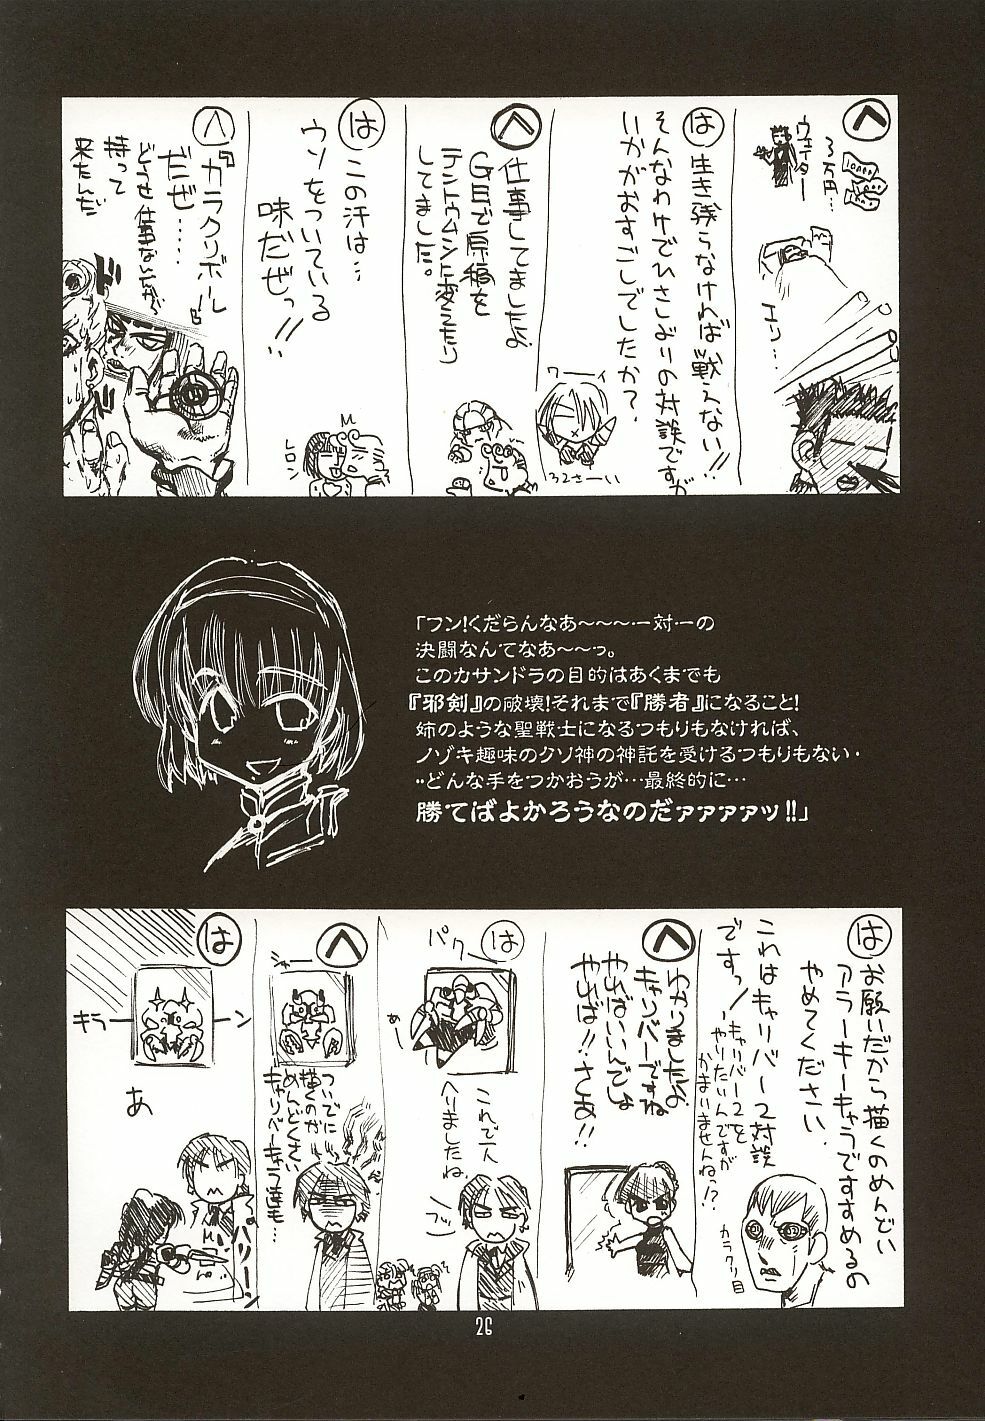 へ
3万円…
ウェイター
エリ…
は
生き残らなければ戦えない!!
そんなわけでひさしぶりの対談ですが
いかがおすごしでしたか?
ワーイ
132さーい
へ
仕事してましたよ
GEで原稿を
テントウムシに変えたり
してました。
は
この汗は…
ウソをついている
味だぜっ!!
レロン
へ
『ガラクリボール』
だぜ……
どうせ仕事ないんだから
持って
来たんだ
ドドド
「フン!くだらんなあ〜〜〜…一対一の
決闘なんてなあ〜〜っ。
このカサンドラの目的はあくまでも
『邪剣』の破壊!それまで『勝者』になること!
姉のような聖戦士になるつもりもなければ、
ノゾキ趣味のクソ神の神託を受けるつもりもない・
・・どんな手をつかおうが…最終的に…
勝てばよかろうなのだァァァァッ!!」
は
お願いだから描くのめんどい
アラーキーキャラですすめるの
やめてください
これはキャリバー2対談
ですっ!
キャリバー2を
やりたいんですが
かまいませんねっ!?
カラクリ目
へ
わかりましたよ
キャリバーですね
やればいいんでしょ
やれば!!さあ!!
は
パク
め〜
これで一人
へりましたね
フッ
へ
シャー
ついでに
描くのが
めんどくさい
キャリバーキャラ達も…
は
キラーーン
あ
バリーン
26